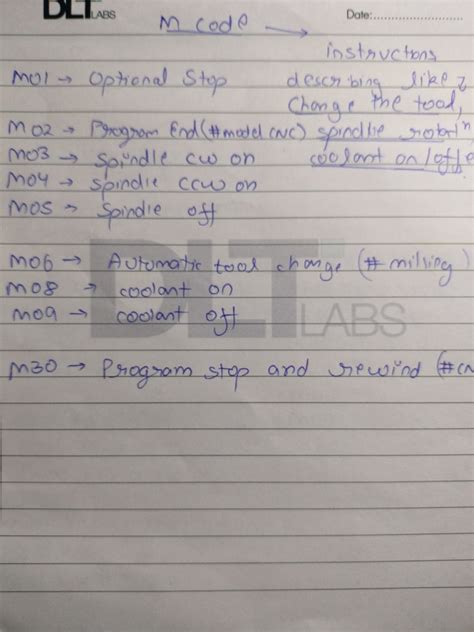 DLT LABS
Date:
M code →
instructions
M01 → Optional Stop describing like
change the tool,
M02 → Program End (#model CNC) spindle
M03 → Spindle cw on coolant on/off
M04 → spindle ccw on
M05 → Spindle off
M06 → Automatic tool change (# milling)
M08 → coolant on
M09 → coolant off
DLT LABS
M30 → Program stop and rewind (#cn